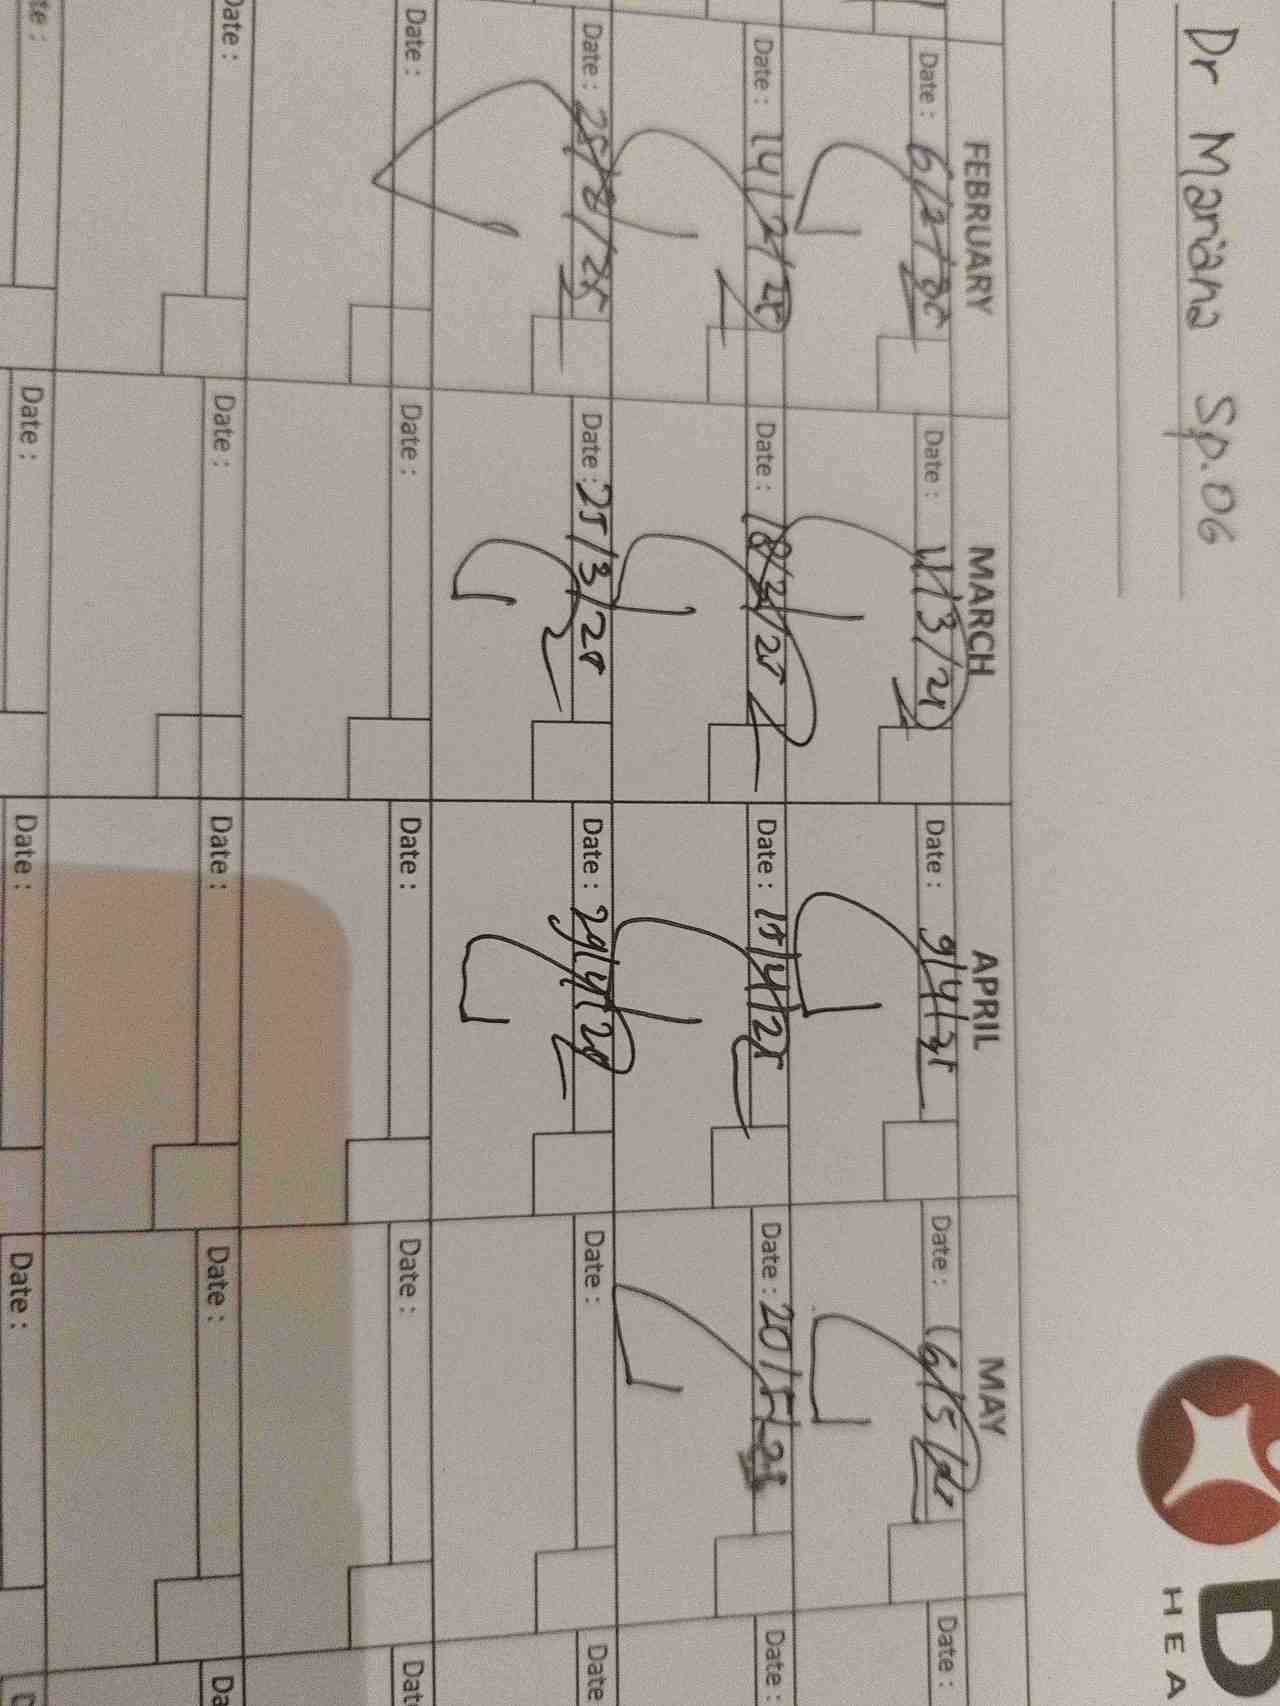 Dr Mariana Sp.OG
D
HEA
FEBRUARY MARCH APRIL MAY
Date : 6/2/25 Date : 11/3/25 Date : 9/4/25 Date : 16/5/25 Date :
Date : 14/2/25 Date : 18/3/25 Date : 15/4/25 Date : 20/5/25 Date :
Date : 25/2/25 Date : 25/3/25 Date : 29/4/25 Date : Date
Date : Date : Date : Date : Date
Date : Date : Date : Date : Da
te : Date : Date : Date : D